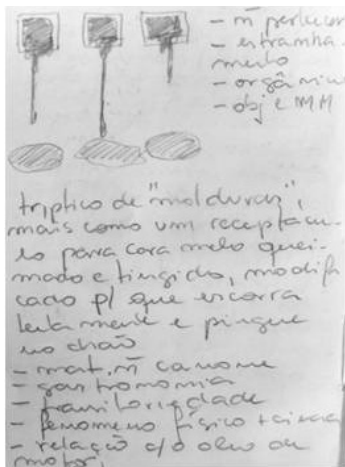 - ñ pertencer
- estranha-
mento
- orgânico
- obj e MM
triptico de "molduras",
mais como um receptácu-
lo para caramelo quei-
mado e tingido, modifi
cado p/ que escorra
lentamente e pingue
no chão
- mat. ñ canone
- gastronomia
- transitoriedade
- fenomeno físico +
- relação c/ o oleo de
motor.